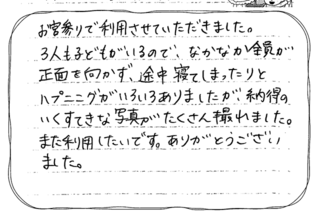 お宮参りで利用させていただきました。
3人も子どもがいるので、なかなか全員が
正面を向かず、途中寝てしまったりと
ハプニングがいろいろありましたが、納得の
いくすてきな写真がたくさん撮れました。
また利用したいです。ありがとうござい
ました。